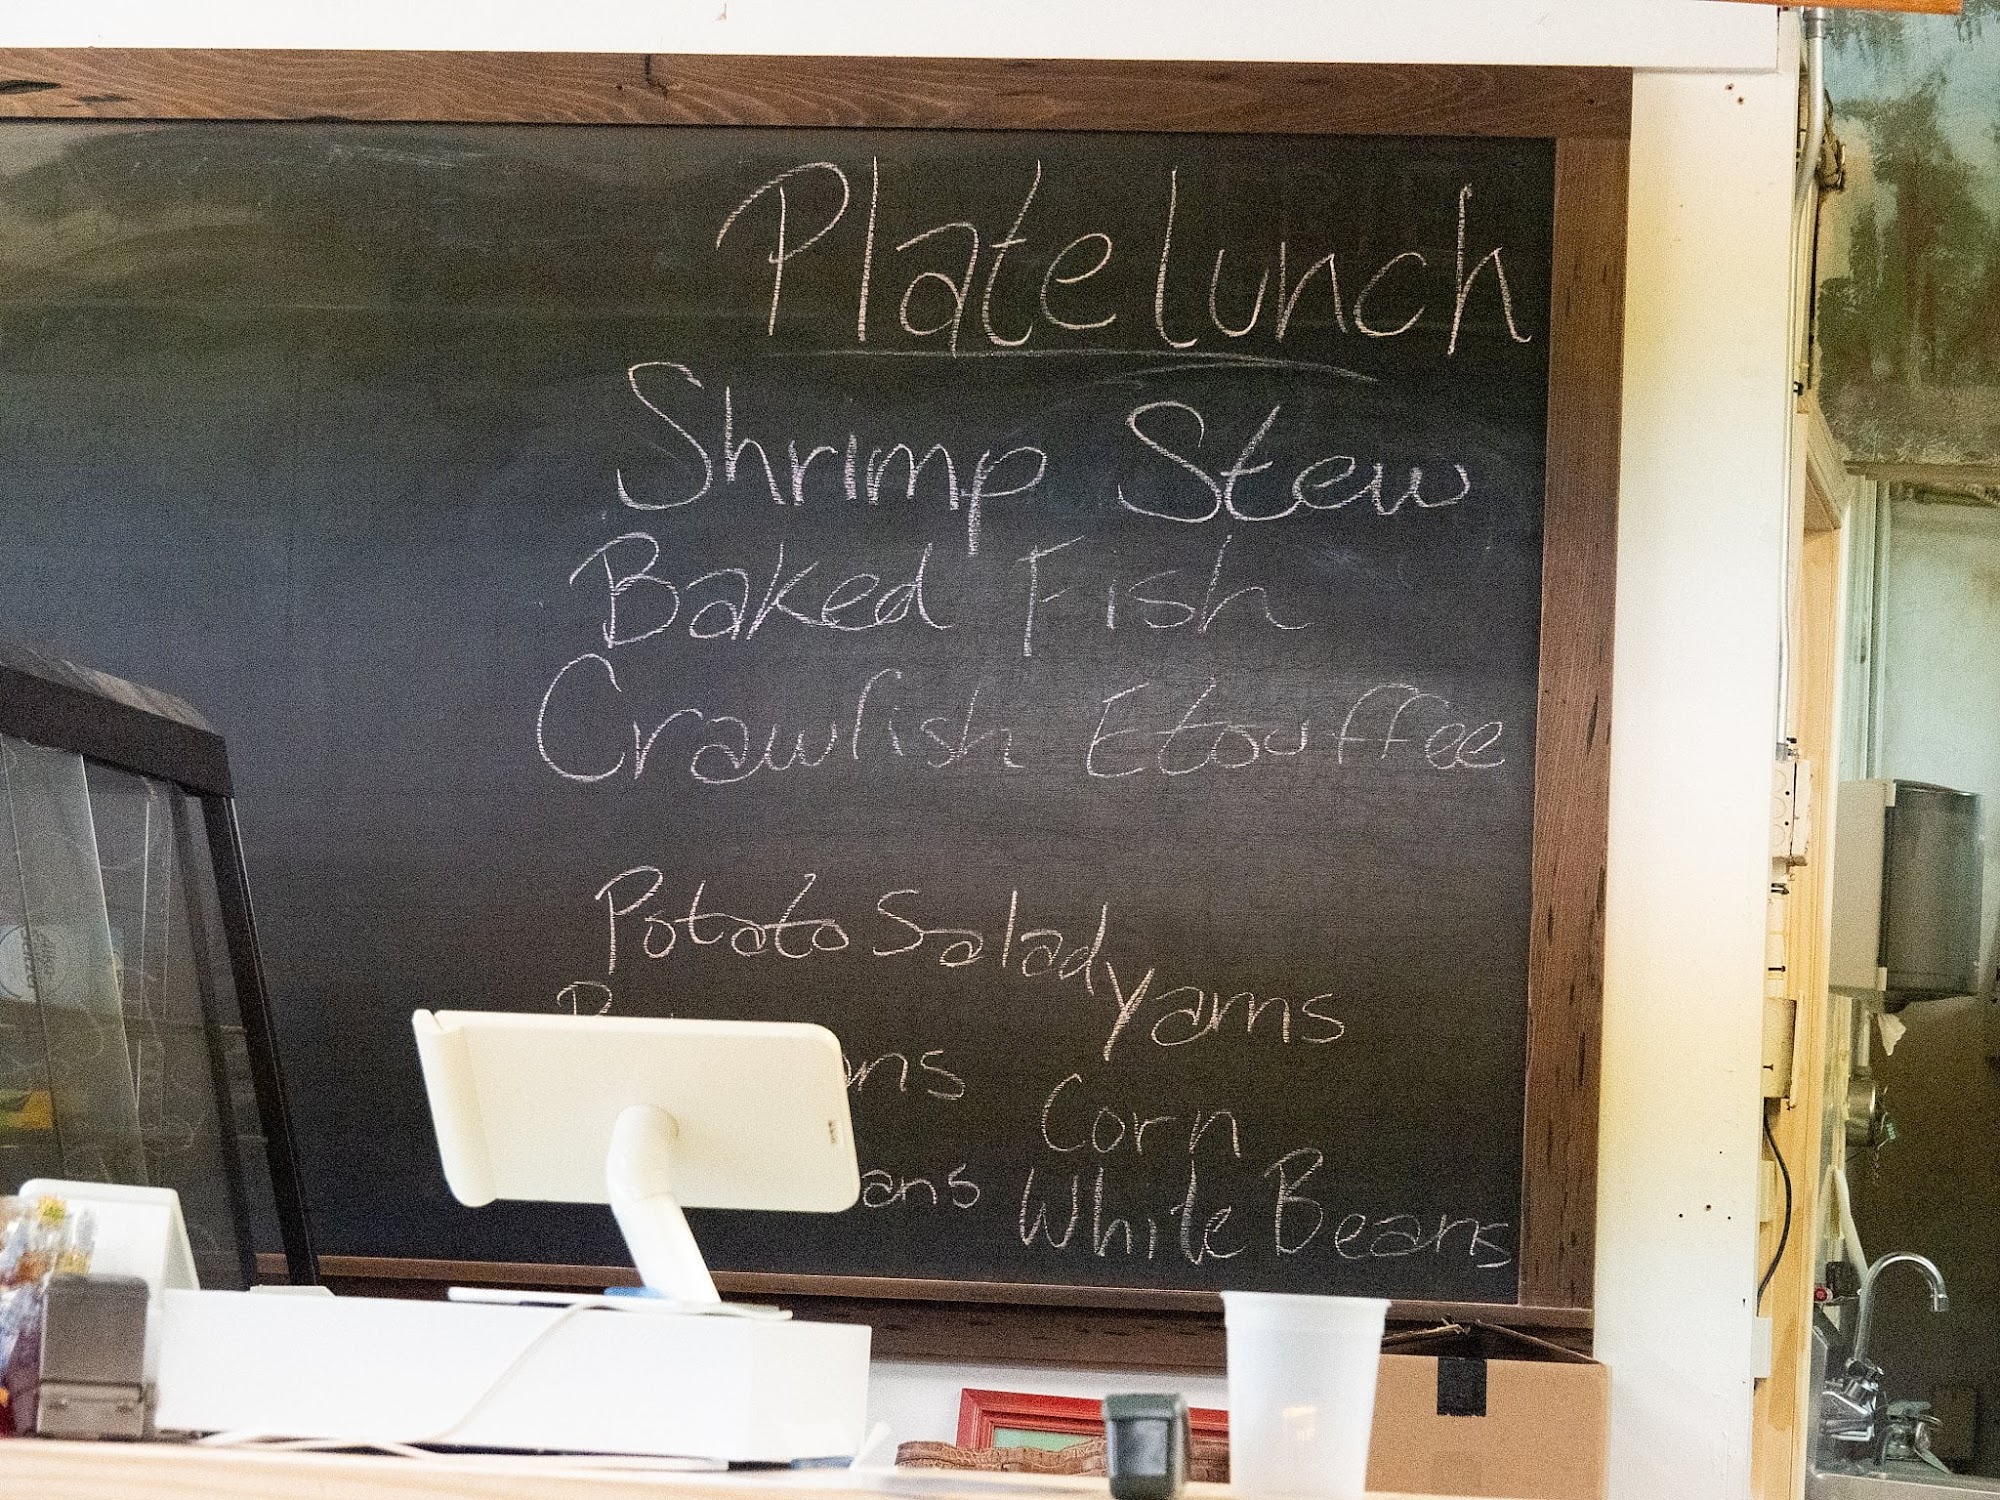 Plate lunch
Shrimp Stew
Baked Fish
Crawfish Etouffee
Potato Salad
Yams
Corn
White Beans